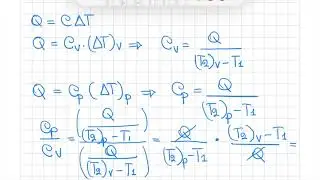 Q = CΔT
Q = Cv·(ΔT)v ⇒ Cv = Q / ((T2)v - T1)
Q = Cp (ΔT)p ⇒ Cp = Q / ((T2)p - T1)
Cp / Cv = (Q / ((T2)p - T1)) / (Q / ((T2)v - T1)) = Q / ((T2)p - T1) · ((T2)v - T1) / Q =